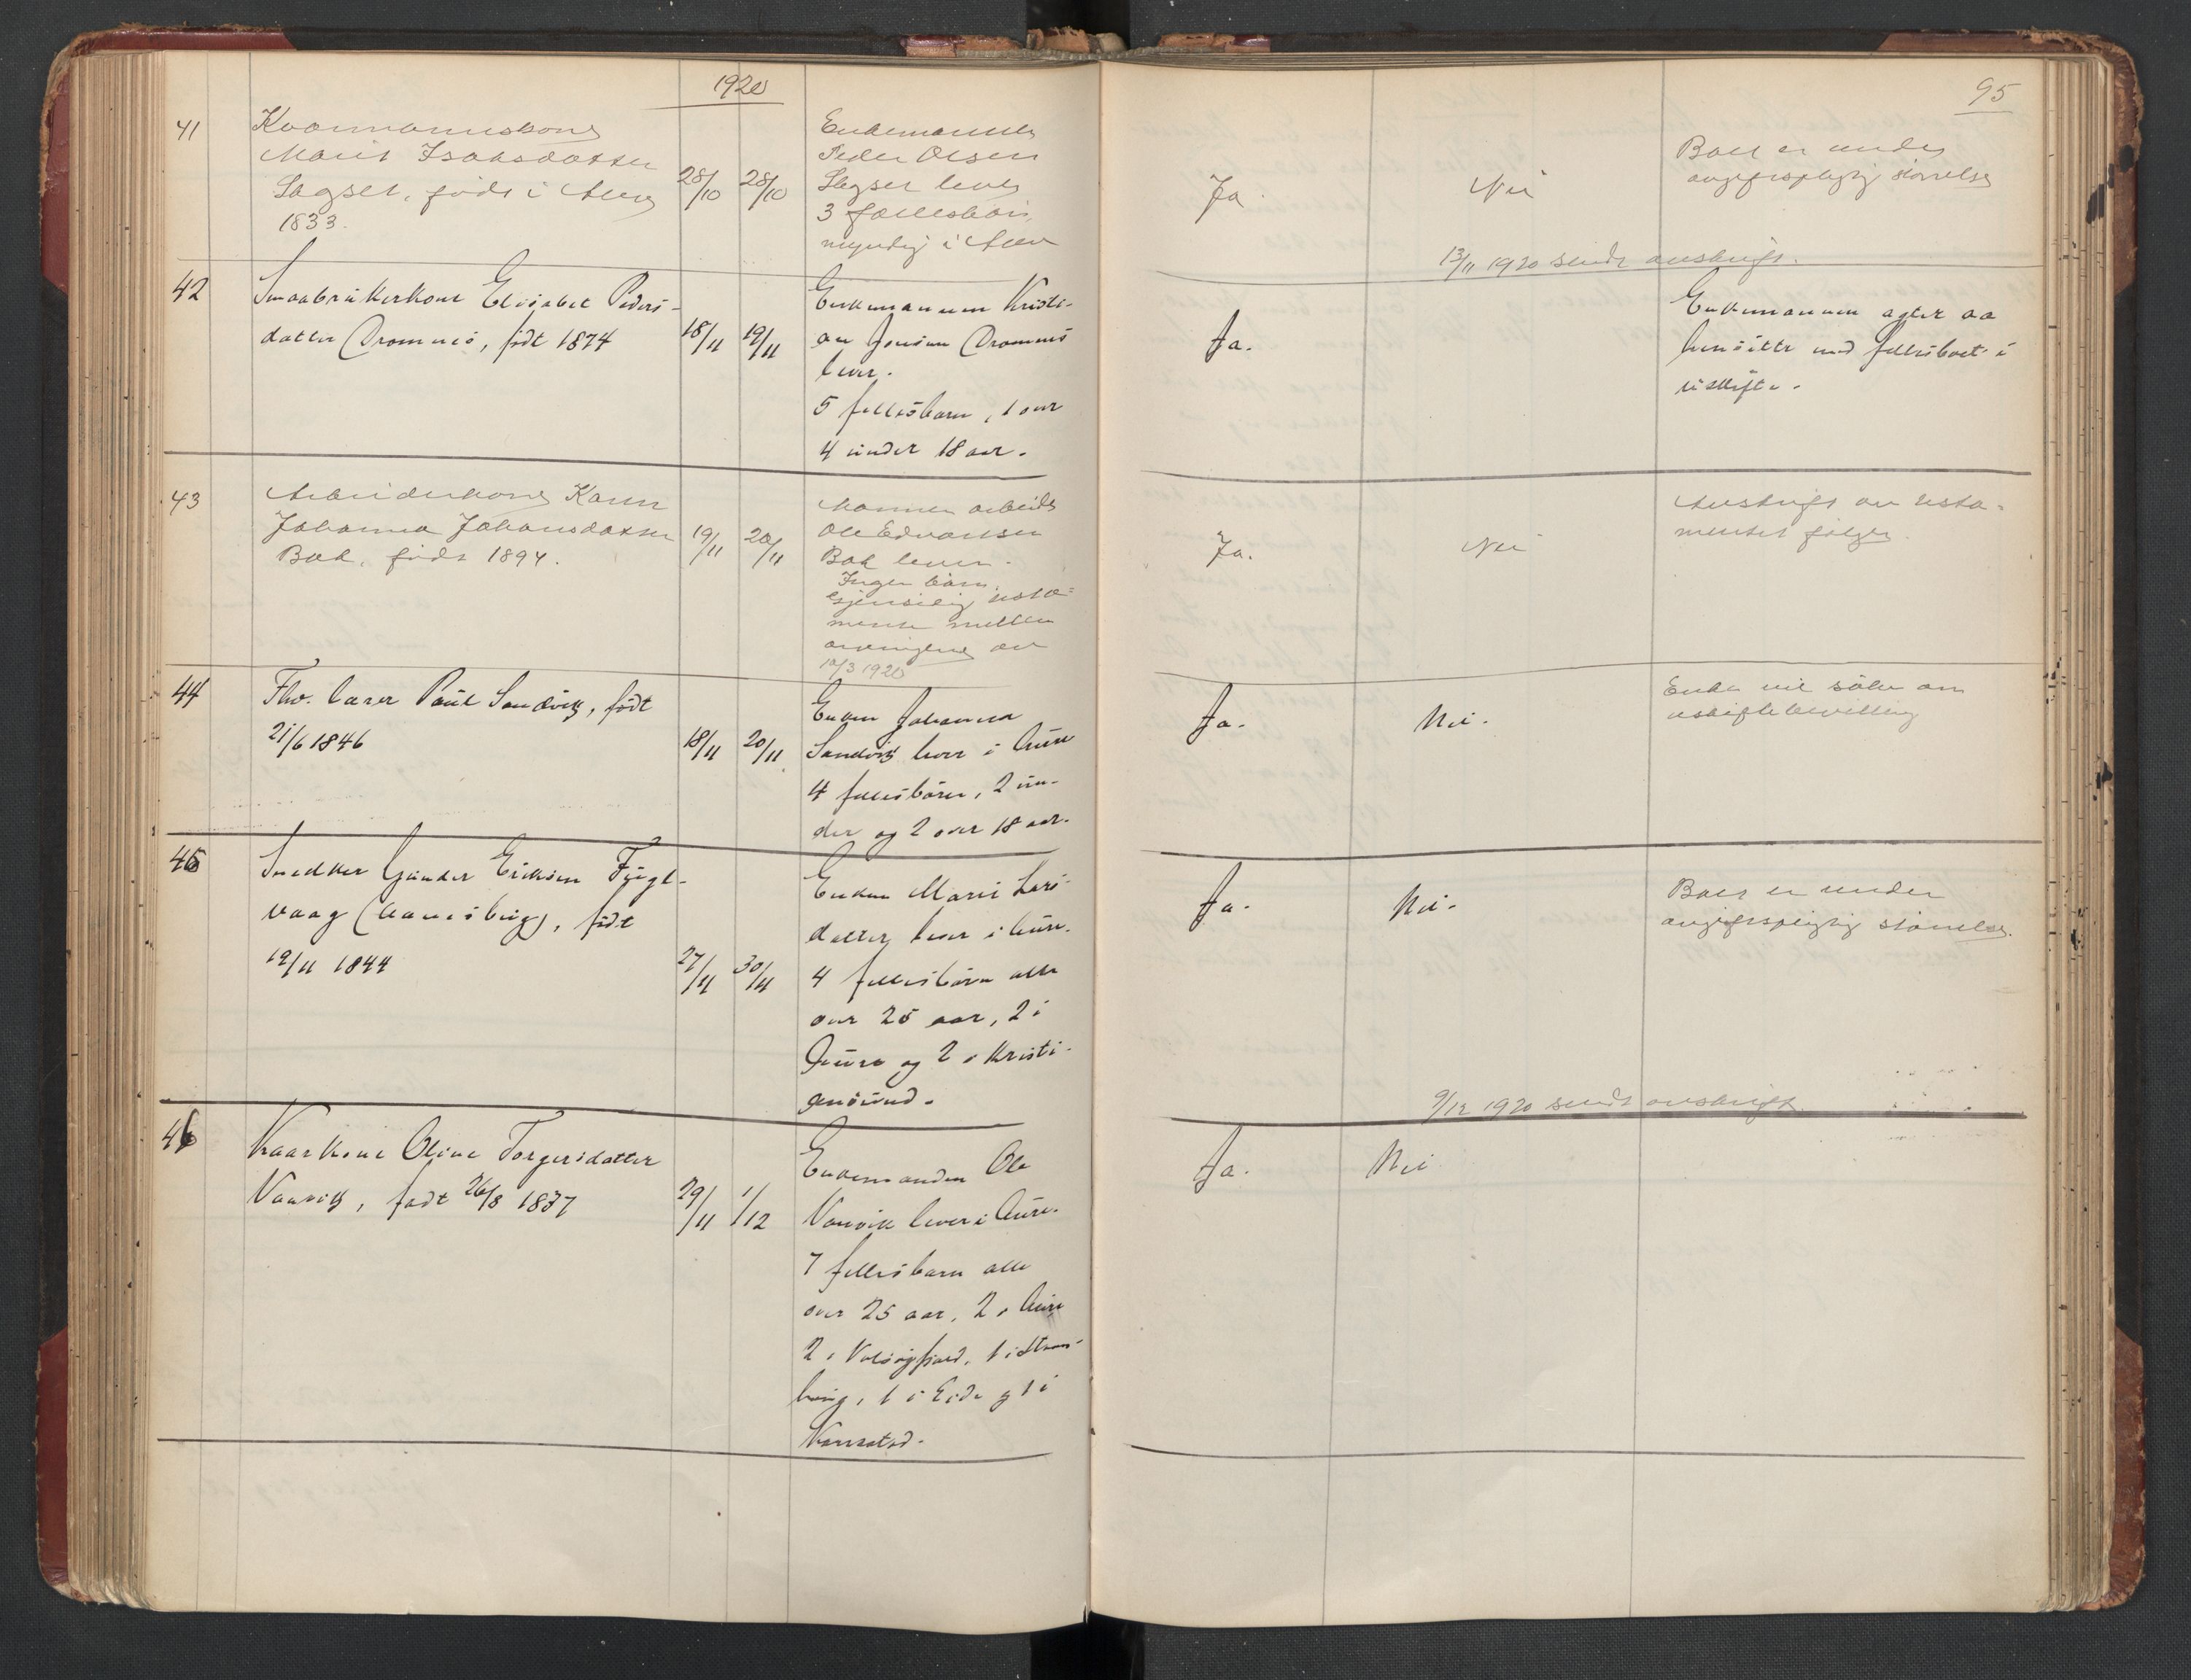 1920
95
41
Kaarmannskone
Marit Isaksdatter
Sagset, født i Aure
1833.
28/10 28/10
Enkemannen
Peder Olsen
Sagset lever
3 fællesbarn,
myndig i Aure
Ja
Nei
Boet er under
avgiftspligtig størrelse
13/11 1920 sendt avskrift.
42
Smaabrukerkone Elisabet Peders-
datter Dromnes, født 1874
18/11 19/11
Enkemannen Kristi-
an Jensen Dromnes
lever.
5 fellesbarn, 1 over
4 under 18 aar.
Ja.
Enkemannen agter aa
hensitte med fellesboet i
uskifte.
43
Arbeiderkone Karen
Johanna Johansdatter
Bak, født 1894.
19/11 20/11
Mannen arbeider
Ole Edvardsen
Bak lever.
Ingen barn.
Gjensidig testa=
mente mellem
arvingene av
10/3 1920
Ja.
Nei
Avskrift av testa=
mentet følger.
44
Fhv. lærer Paul Sandvik, født
21/6 1846
18/11 20/11
Enken Johanna
Sandvik lever i Aure
4 fellesbarn, 2 un-
der og 2 over 18 aar.
Ja.
Nei.
Enken vil søke om
uskiftebevilling
45
Snedker Gunder Eriksen Fugl-
vaag, født
19/11 1844
27/11 30/11
Enken Marie Lars-
datter lever i Aure.
4 fellesbarn alle
over 25 aar, 2 i
Aure og 2 i Kristi-
ansund.
Ja.
Nei.
Boet er under
avgiftspligtig størrelse.
9/12 1920 sendt avskrift.
46
Kaarkone Oline Torgersdatter
Vaavik, født 26/8 1837
29/11 1/12
Enkemanden Ole
Vaavik lever i Aure.
7 fellesbarn alle
over 25 aar, 2 i Aure
2 i Valsøyfjord, 1 i
1 i Eide og 1 i
Ja.
Nei